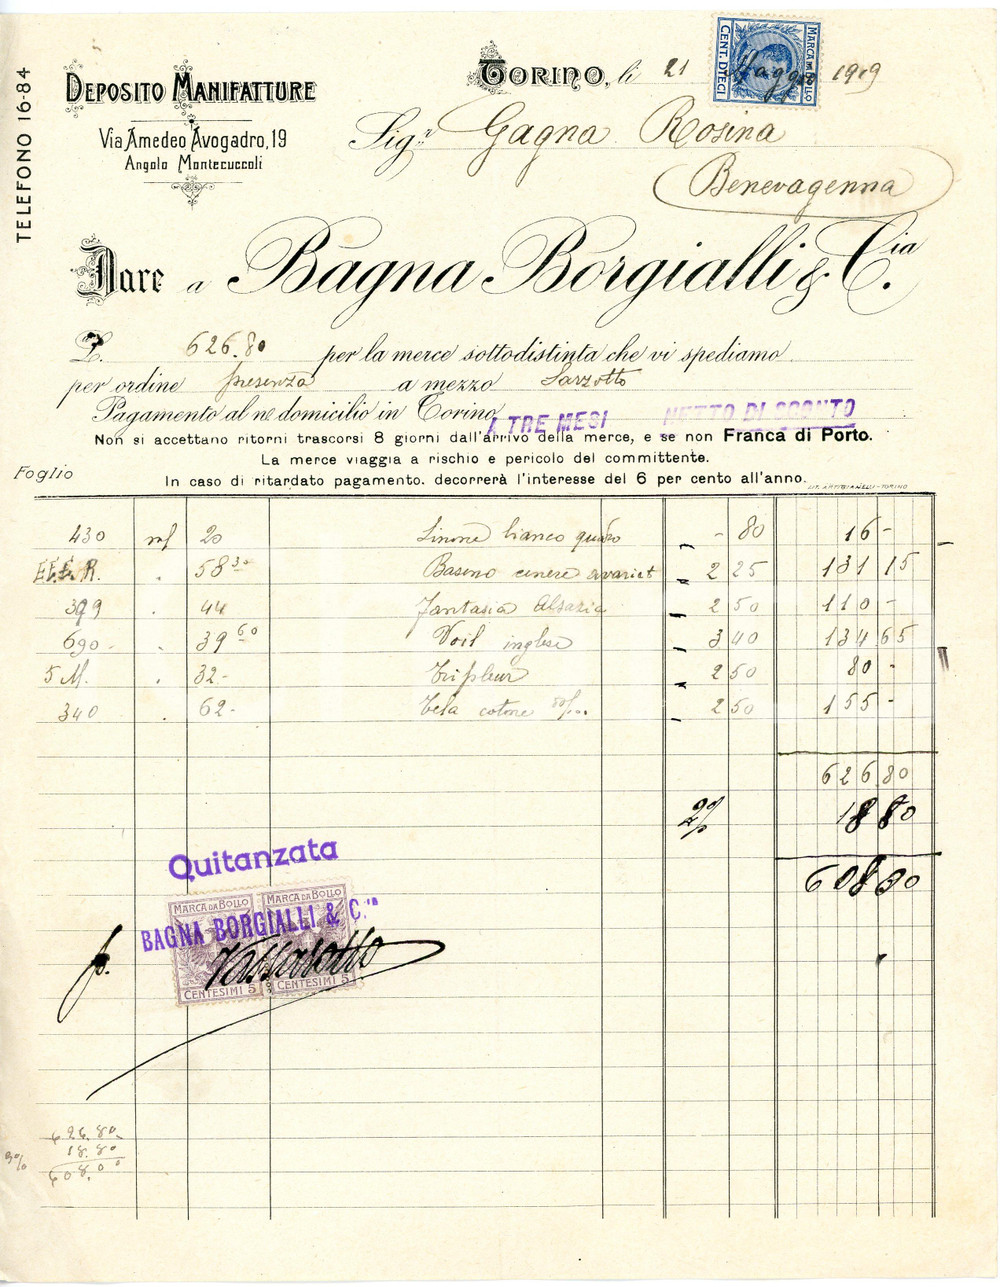 TELEFONO 16-84
DEPOSITO MANIFATTURE
Via Amedeo Avogadro, 19
Angolo Montecuccoli
TORINO, li 21 Maggio 1919
MARCA DA BOLLO
CENT. DIECI
Sigr. Gagna Rosina
Benevagenna
Dare a Bagna Borgialli & Cia.
L. 626.80 per la merce sottodistinta che vi spediamo
per ordine presenza a mezzo Sarzotto
Pagamento al ns/ domicilio in Torino A TRE MESI NETTO DI SCONTO
Non si accettano ritorni trascorsi 8 giorni dall'arrivo della merce, e se non Franca di Porto.
La merce viaggia a rischio e pericolo del committente.
Foglio
In caso di ritardato pagamento. decorrerà l'interesse del 6 per cento all'anno.
LIT. ARTIGIANELLI - TORINO
430 20 bianco - 80 16 -
58 30 Basino cenere 2 25 131 15
399 . 44 Fantasia Alsazia 2 50 110 -
690 - . 39 60 Voil inglese 3 40 134 65
5 M. . 32 - 2 50 80 -
340 . 62 - Tela cotone 2 50 155 -
626 80
18 80
608 30
Quitanzata
MARCA DA BOLLO MARCA DA BOLLO
BAGNA BORGIALLI & C.ia
p.
CENTESIMI 5 CENTESIMI 5
626.80
18.80
3% 608.00